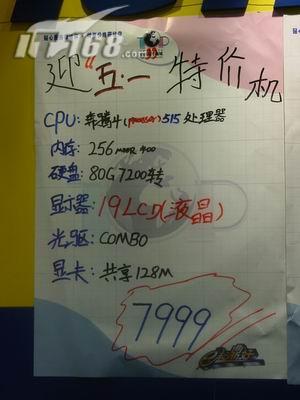 IT168.com
迎“五·一”特价机
CPU: 奔腾4(processer)515处理器
内存: 256 MDDR 400
硬盘: 80G 7200转
显示器: 19LCD(液晶)
光驱: COMBO
显卡: 共享128M
7999